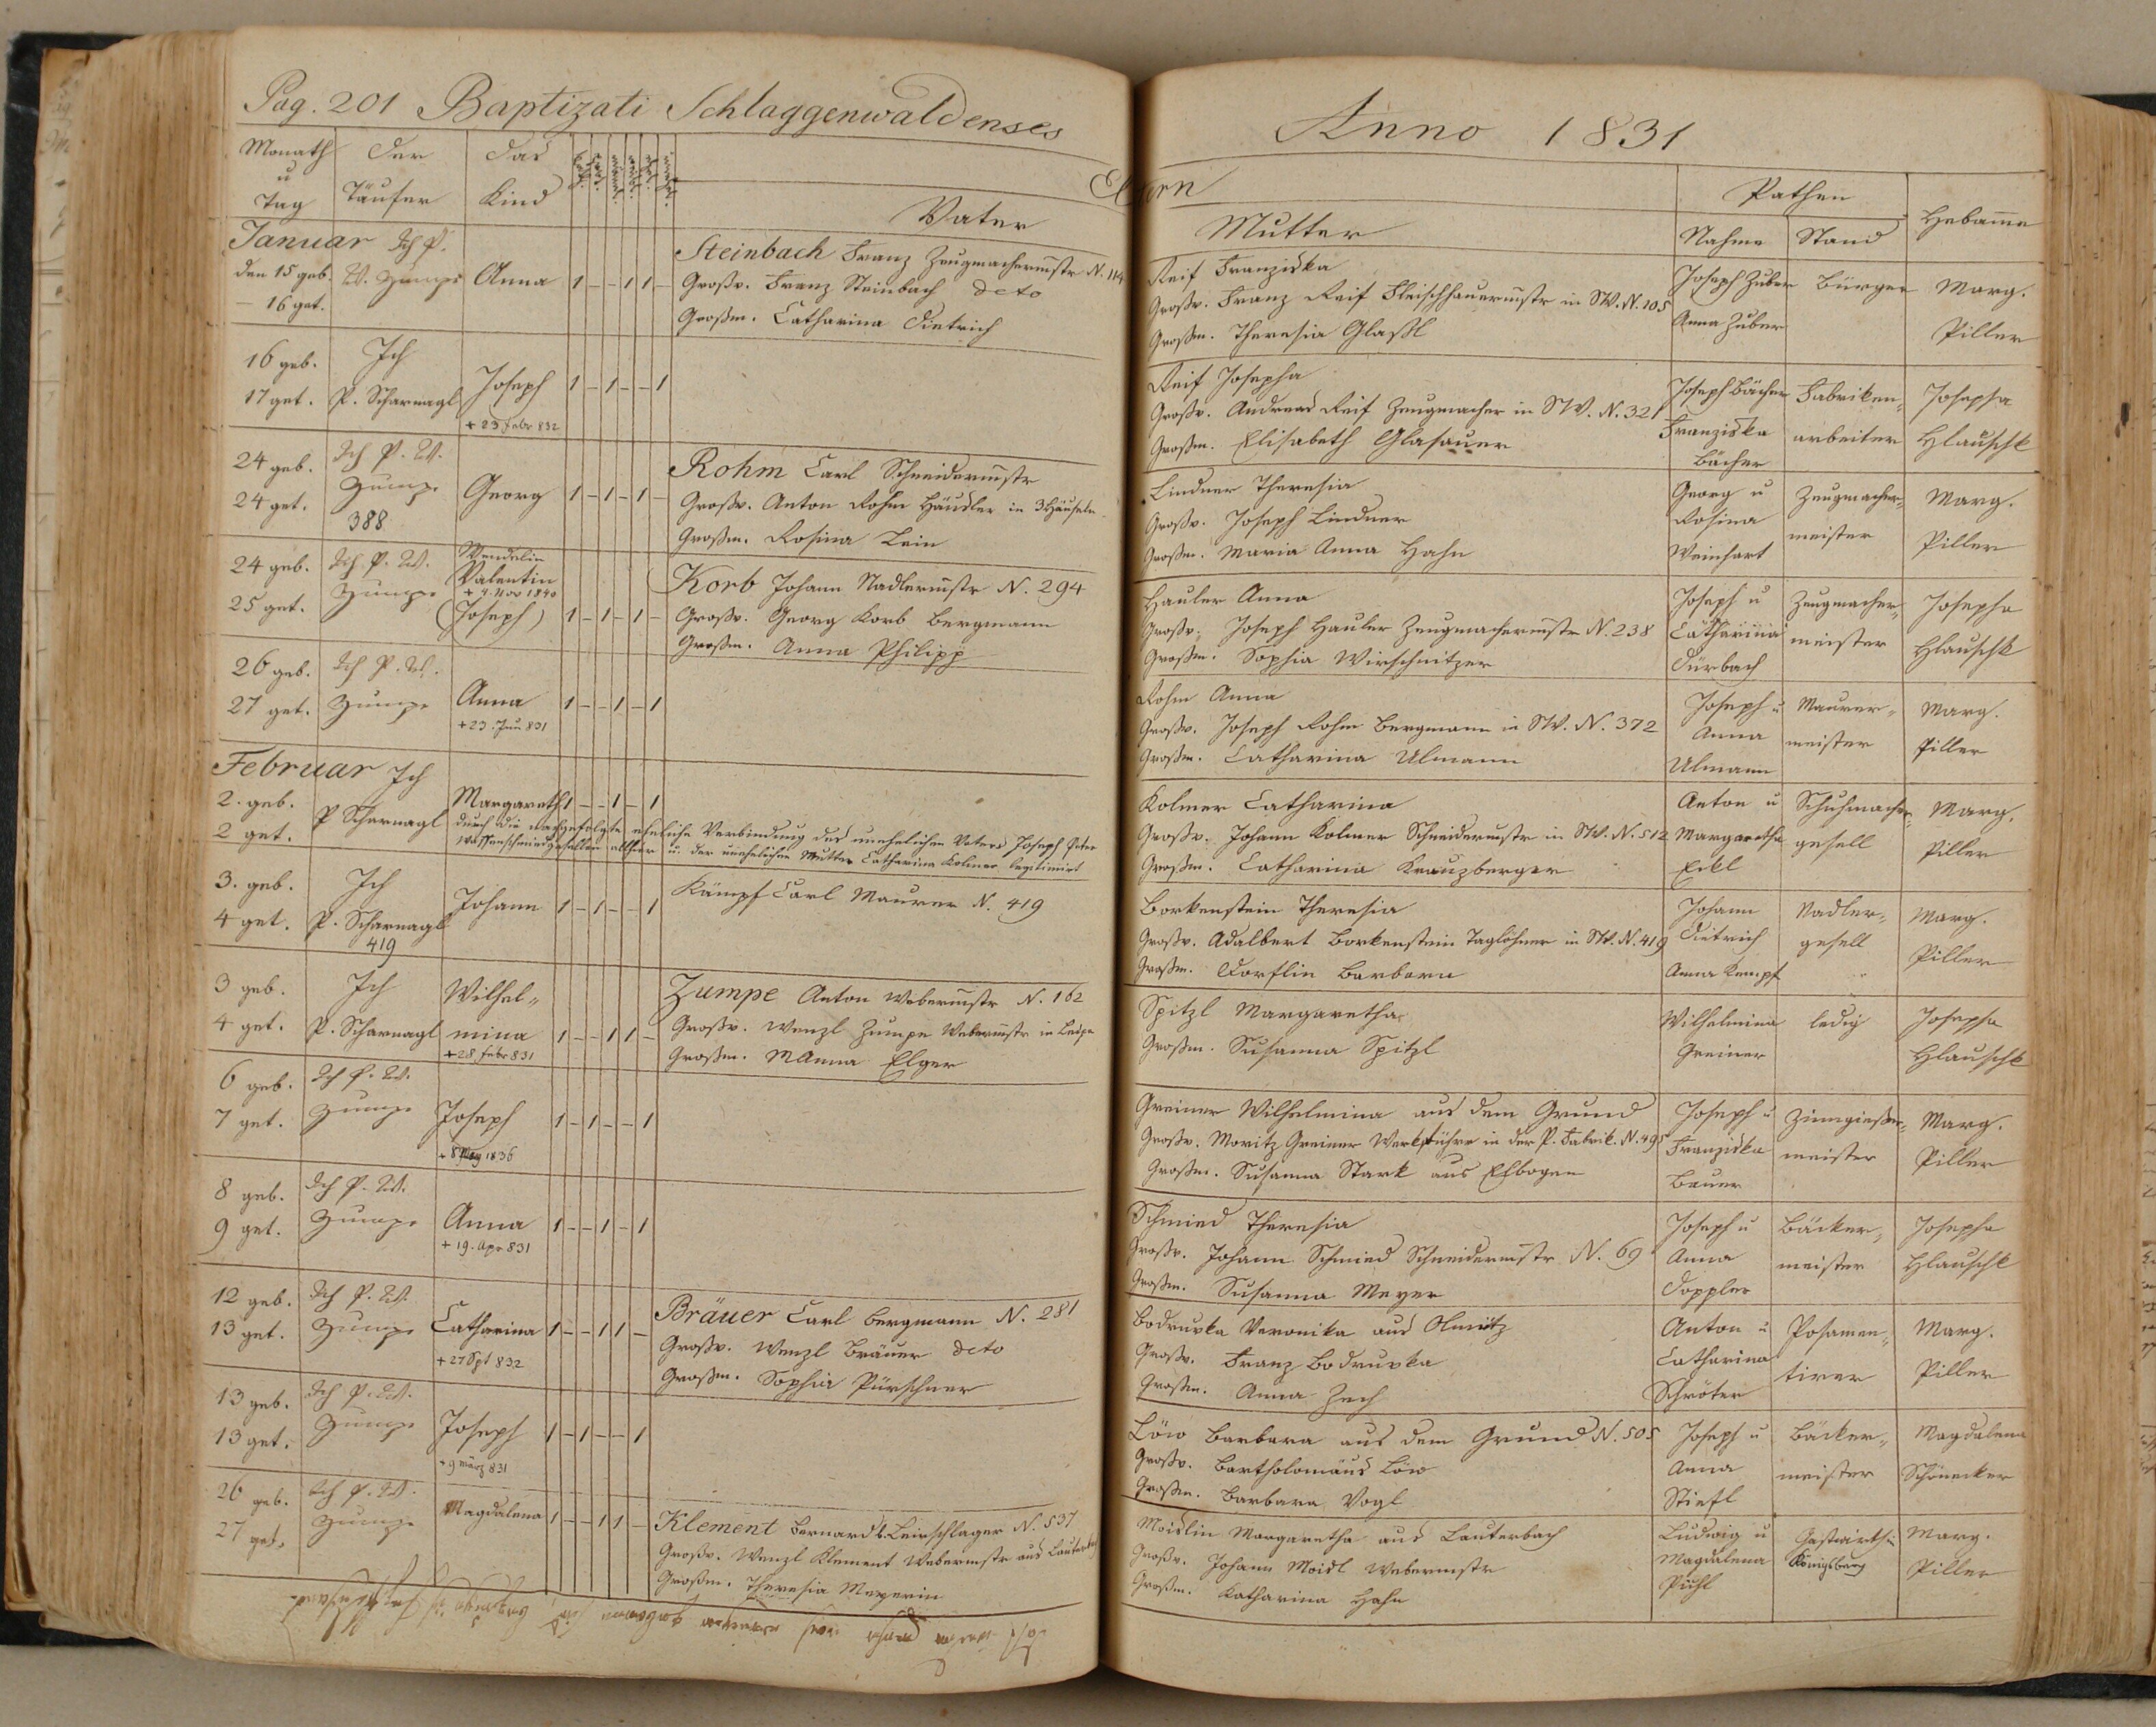 Pag. 201 Baptizati Schlaggenwaldenses
Anno 1831
Monath u Tag
Der Täufer
Das Kind
Eltern
Vater
Mutter
Pathen
Nahme Stand
Hebamme
Januar Ich P.
den 15 geb. W. Zumpe Anna 1 – – 1 1 –
– 16 get.
Steinbach Franz Zeugmachermstr N. 114
Großv. Franz Steinbach deto
Großm. Catharina Dietrich
Reif Franziska
Großv. Franz Reif Fleischhauermstr in SW. N. 105
Großm. Theresia Glaßl
Joseph Zuber Bürger
Anna Zuber
Marg.
Piller
16 geb. Ich
17 get. P. Scharnagl Joseph 1 – 1 – – 1
+ 23 Febr 832
Reif Josepha
Großv. Andreas Reif Zeugmacher in SW. N. 321
Großm. Elisabeth Glasauer
Joseph Bächer Fabriken-
Franziska arbeiter
Bächer
Josepha
Hlauschk
24 geb. Ich P. W.
24 get. Zumpe Georg 1 – 1 – 1 –
388
Rohm Carl Schneidermstr
Großv. Anton Rohm Häusler in 3 Häuseln
Großm. Rosina Lein
Lindner Theresia
Großv. Joseph Lindner
Großm. Maria Anna Hahn
Georg u Zeugmacher-
Rosina meister
Weinhart
Marg.
Piller
24 geb. Ich P. W. Wendelin
Valentin
+ 4. Nov 1840
25 get. Zumpe (Joseph) 1 – 1 – 1 –
Korb Johann Nadlermstr N. 294
Großv. Georg Korb Bergmann
Großm. Anna Philipp
Hauler Anna
Großv. Joseph Hauler Zeugmachermstr N. 238
Großm. Sophia Wirschnitzer
Joseph u Zeugmacher-
Catharina meister
Dürbach
Josepha
Hlauschk
26 geb. Ich P. W.
27 get. Zumpe Anna 1 – – 1 – 1
+ 23. Jun 831
Rohm Anna
Großv. Joseph Rohm Bergmann in SW. N. 372
Großm. Catharina Ulmann
Joseph u Maurer-
Anna meister
Ulmann
Marg.
Piller
Februar Ich
2. geb. P Scharnagl Margareth 1 – – 1 – 1
2 get.
durch die nachgefolgte eheliche Verbindung des unehelichen Vaters Joseph Peter
Waffenschmiedgesellen allhier u. der unehelichen Mutter Catharina Kolmer legitimirt
Kolmer Catharina
Großv. Johann Kolmer Schneidermstr in SW. N. 512
Großm. Catharina Kreuzberger
Anton u Schuhmacher-
Margaretha gesell
Eckl
Marg.
Piller
3. geb. Ich
4 get. P. Scharnagl Johann 1 – 1 – – 1
419
Kämpf Carl Maurer N. 419
Borkenstein Theresia
Großv. Adalbert Borkenstein Taglöhner in SW. N. 419
Großm. Dorflin Barbara
Johann Nadler-
Dietrich gesell
Anna Kempf
Marg.
Piller
3 geb. Ich Wilhel-
4 get. P. Scharnagl mina 1 – – 1 1 –
+ 28 Febr 831
Zumpe Anton Webermstr N. 162
Großv. Wenzl Zumpe Webermstr in Leipa
Großm. MAnna Elger
Spitzl Margaretha
Großm. Susanna Spitzl
Wilhelmina ledig
Greiner
Josepha
Hlauschk
6 geb. Ich P. W.
7 get. Zumpe Joseph 1 – 1 – – 1
+ 8 May 1836
Greiner Wilhelmina aus dem Grund
Großv. Moritz Greiner Werkführer in der P. Fabrik. N. 495
Großm. Susanna Stark aus Elbogen
Joseph u Zinngießer-
Franziska meister
Bauer
Marg.
Piller
8 geb. Ich P. W.
9 get. Zumpe Anna 1 – – 1 – 1
+ 19. Apr 831
Schmied Theresia
Großv. Johann Schmied Schneidermstr N. 69
Großm. Susanna Meyer
Joseph u Bäcker-
Anna meister
Doppler
Josepha
Hlauschk
12 geb. Ich P. W.
13 get. Zumpe Catharina 1 – – 1 1 –
+ 27 Spt 832
Bräuer Carl Bergmann N. 281
Großv. Wenzl Bräuer deto
Großm. Sophia Pürschner
Bodruvka Veronika aus Olmütz
Großv. Franz Bodruvka
Großm. Anna Zech
Anton u Posamen-
Catharina tirer
Schröter
Marg.
Piller
13 geb. Ich P. W.
13 get. Zumpe Joseph 1 – 1 – – 1
+ 9 März 831
Löw Barbara aus dem Grund N. 505
Großv. Bartholomäus Löw
Großm. Barbara Vogl
Joseph u Bäcker-
Anna meister
Stiefl
Magdalena
Schönecker
26 geb. Ich P. W.
27 get. Zumpe Magdalena 1 – – 1 1 –
Klement Bernard b. Bierschlager N. 537
Großv. Wenzl Klement Webermstr aus Lauterbach
Großm. Theresia Meyerin
Moislin Margaretha aus Lauterbach
Großv. Johann Moisl Webermstr
Großm. Katharina Hahn
Ludwig u Gastwirth in
Magdalena Königsberg
Pühl
Marg.
Piller